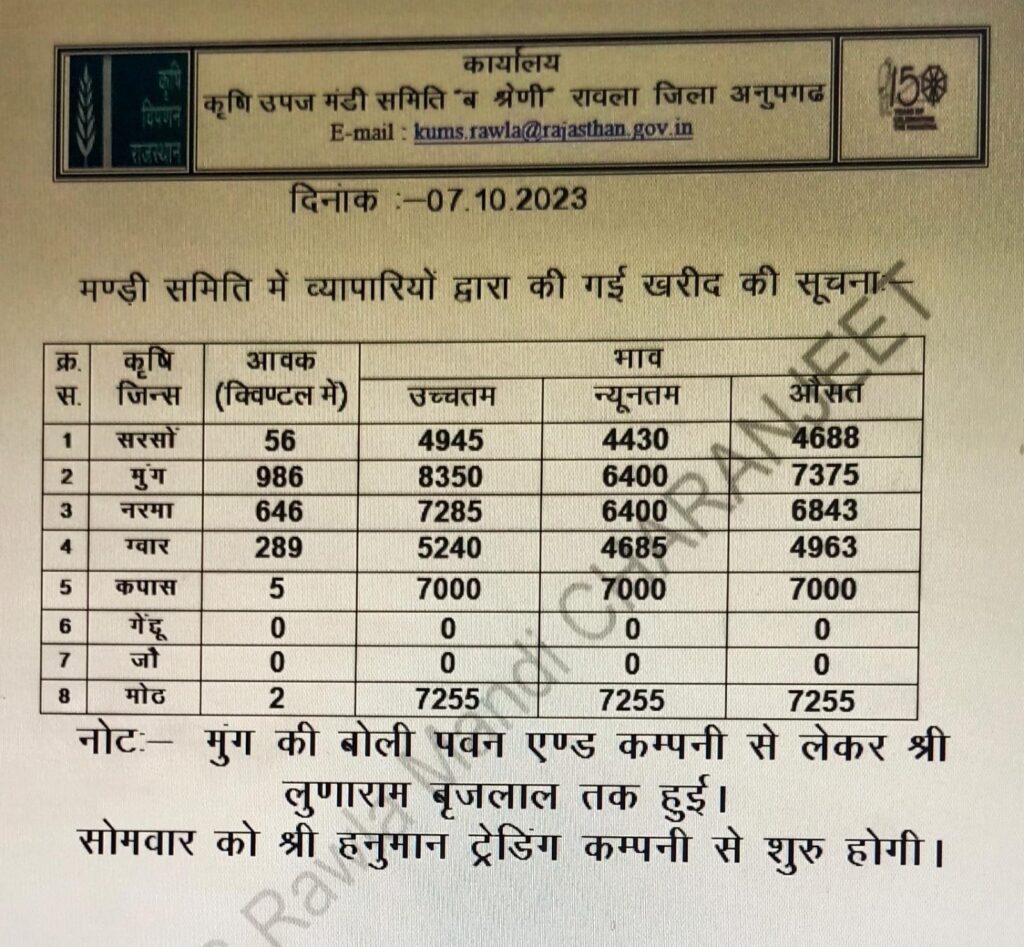 कृषि
विपणन
राजस्थान
कार्यालय
कृषि उपज मंडी समिति "ब श्रेणी" रावला जिला अनुपगढ
E-mail : kums.rawla@rajasthan.gov.in
150
दिनांक :–07.10.2023
मण्ड़ी समिति में व्यापारियों द्वारा की गई खरीद की सूचनाः–
क्र. स. कृषि जिन्स आवक (क्विण्टल में) भाव
उच्चतम न्यूनतम औसत
1 सरसों 56 4945 4430 4688
2 मुंग 986 8350 6400 7375
3 नरमा 646 7285 6400 6843
4 ग्वार 289 5240 4685 4963
5 कपास 5 7000 7000 7000
6 गेंहू 0 0 0 0
7 जौ 0 0 0 0
8 मोठ 2 7255 7255 7255
नोटः– मुंग की बोली पवन एण्ड कम्पनी से लेकर श्री
लुणाराम बृजलाल तक हुई।
सोमवार को श्री हनुमान ट्रेडिंग कम्पनी से शुरु होगी।
Rawla Mandi CHARANJEET